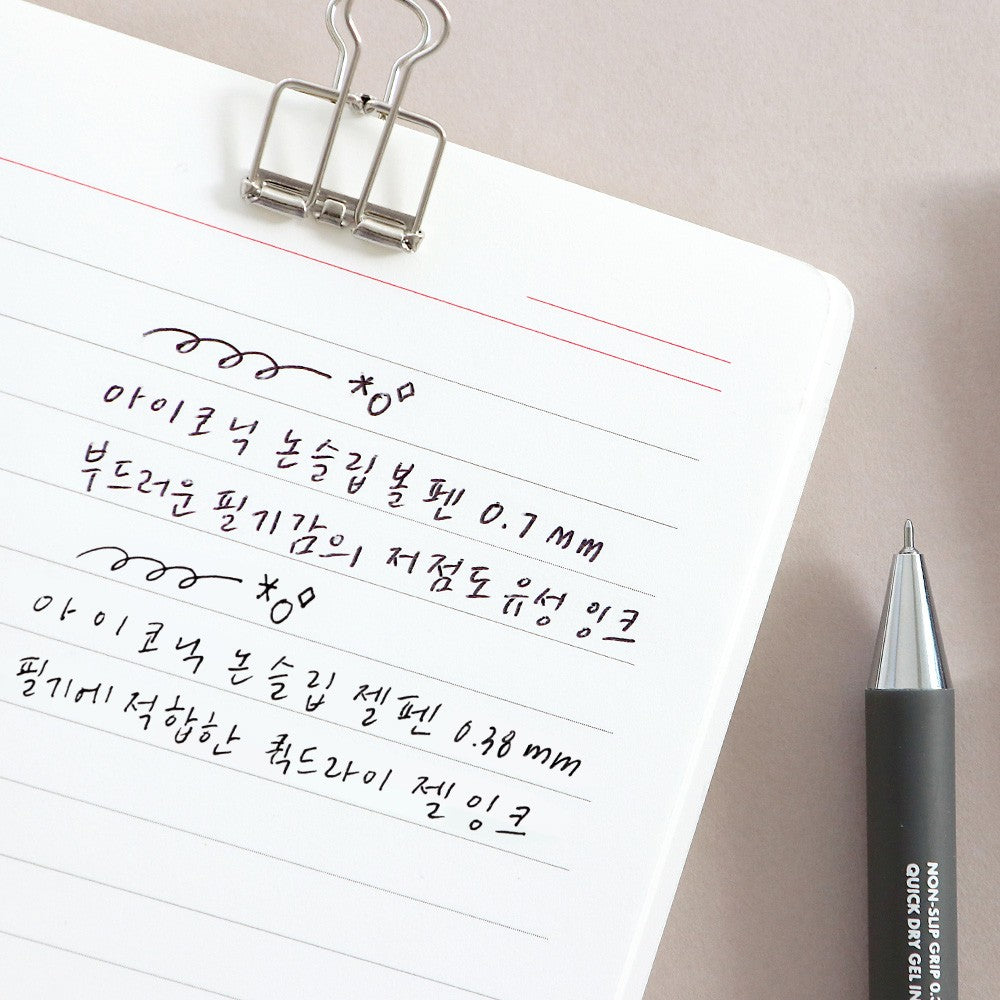 아이코닉 논슬립 볼펜 0.7 mm
부드러운 필기감의 저점도 유성 잉크
아이코닉 논슬립 젤펜 0.38 mm
필기에 적합한 퀵드라이 젤 잉크
NON-SLIP GRIP 0.
QUICK DRY GEL IN